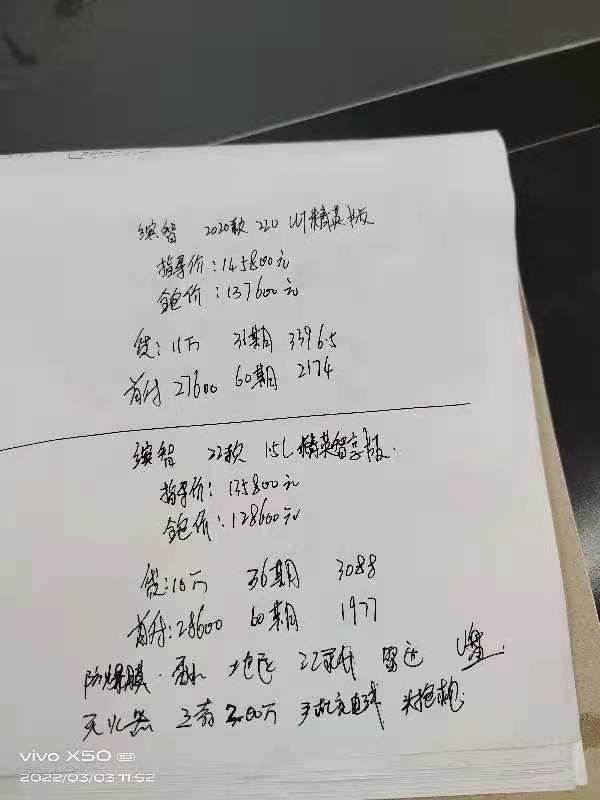 缤智 2020款 220 CVT精英版
指导价:145800元
全包价:137600元
贷:11万 36期 3396.5
首付 27600 60期 2174
缤智 22款 1.5L精英智享版.
指导价:135800元
全包价:128600元
贷:10万 36期 3088
首付:28600 60期 1977
防爆膜. 地毯 记录仪 雷达 U盘.
灭火器 三者200万 手机充电线 头抱枕.
vivo X50 5G
2022/03/03 11:52